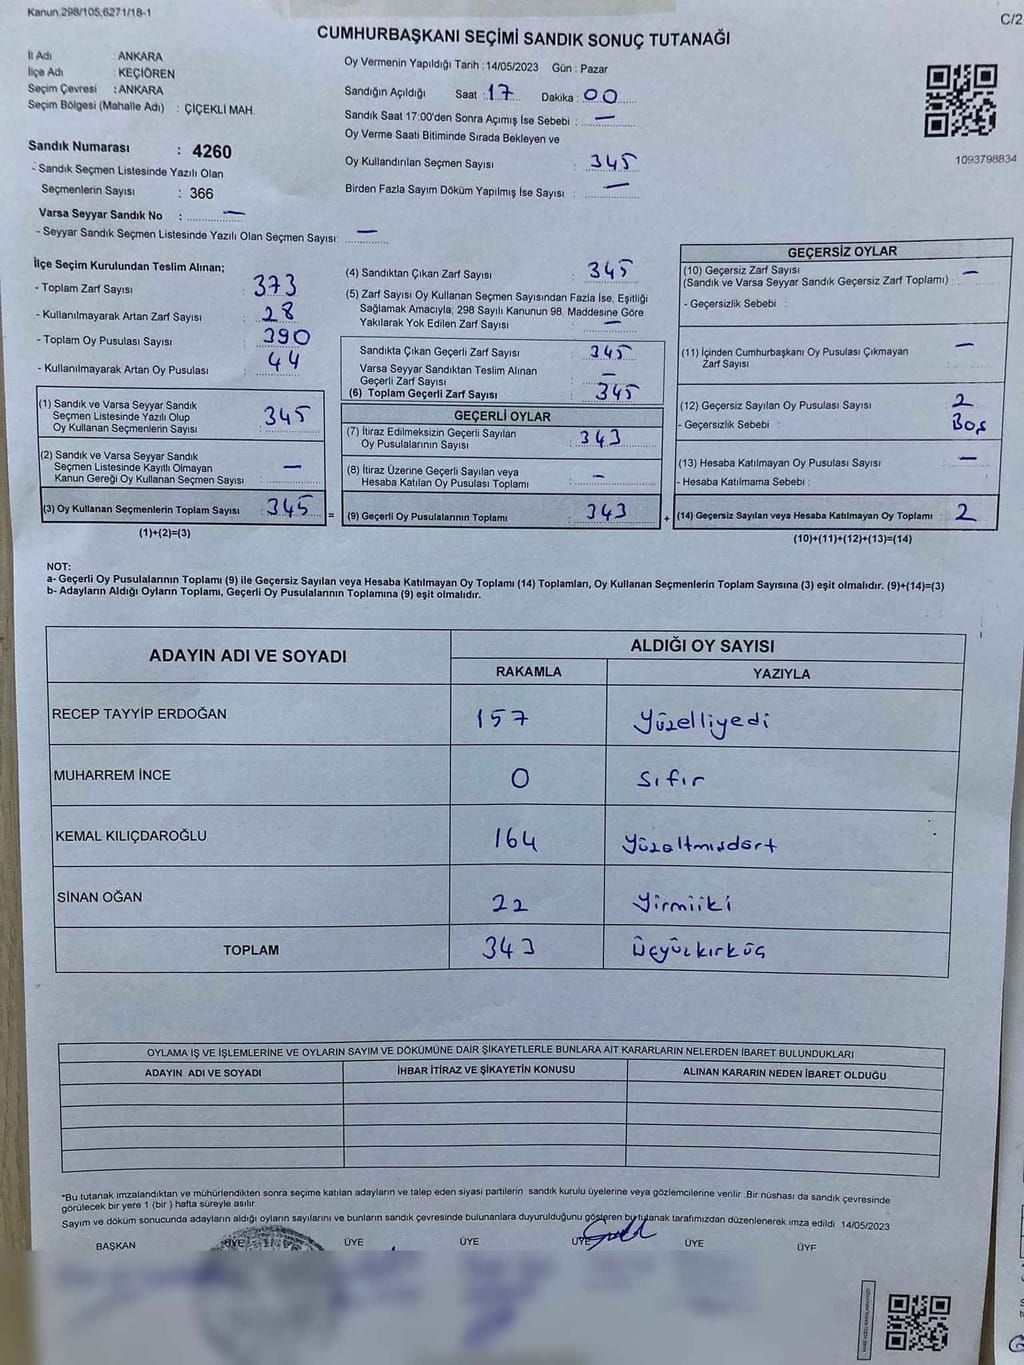 Kanun;298/105;6271/18-1
C/2
CUMHURBAŞKANI SEÇİMİ SANDIK SONUÇ TUTANAĞI
İl Adı : ANKARA
İlçe Adı : KEÇİÖREN
Seçim Çevresi : ANKARA
Seçim Bölgesi (Mahalle Adı) : ÇİÇEKLİ MAH.
Sandık Numarası : 4260
- Sandık Seçmen Listesinde Yazılı Olan
Seçmenlerin Sayısı : 366
Varsa Seyyar Sandık No : —
- Seyyar Sandık Seçmen Listesinde Yazılı Olan Seçmen Sayısı: —
Oy Vermenin Yapıldığı Tarih :14/05/2023 Gün : Pazar
Sandığın Açıldığı Saat : 17 Dakika : 00
Sandık Saat 17:00'den Sonra Açımış İse Sebebi : —
Oy Verme Saati Bitiminde Sırada Bekleyen ve
Oy Kullandırılan Seçmen Sayısı : 345
Birden Fazla Sayım Döküm Yapılmış İse Sayısı : —
1093798834
İlçe Seçim Kurulundan Teslim Alınan;
- Toplam Zarf Sayısı : 373
- Kullanılmayarak Artan Zarf Sayısı : 28
- Toplam Oy Pusulası Sayısı : 390
- Kullanılmayarak Artan Oy Pusulası : 44
(1) Sandık ve Varsa Seyyar Sandık
Seçmen Listesinde Yazılı Olup
Oy Kullanan Seçmenlerin Sayısı : 345
(2) Sandık ve Varsa Seyyar Sandık
Seçmen Listesinde Kayıtlı Olmayan
Kanun Gereği Oy Kullanan Seçmen Sayısı : —
(3) Oy Kullanan Seçmenlerin Toplam Sayısı : 345 =
(1)+(2)=(3)
(4) Sandıktan Çıkan Zarf Sayısı : 345
(5) Zarf Sayısı Oy Kullanan Seçmen Sayısından Fazla İse, Eşitliği
Sağlamak Amacıyla; 298 Sayılı Kanunun 98. Maddesine Göre
Yakılarak Yok Edilen Zarf Sayısı : —
Sandıkta Çıkan Geçerli Zarf Sayısı : 345
Varsa Seyyar Sandıktan Teslim Alınan
Geçerli Zarf Sayısı : —
(6) Toplam Geçerli Zarf Sayısı : 345
GEÇERLİ OYLAR
(7) İtiraz Edilmeksizin Geçerli Sayılan
Oy Pusulalarının Sayısı : 343
(8) İtiraz Üzerine Geçerli Sayılan veya
Hesaba Katılan Oy Pusulası Toplamı : —
(9) Geçerli Oy Pusulalarının Toplamı : 343 +
GEÇERSİZ OYLAR
(10) Geçersiz Zarf Sayısı
(Sandık ve Varsa Seyyar Sandık Geçersiz Zarf Toplamı) : —
- Geçersizlik Sebebi :
(11) İçinden Cumhurbaşkanı Oy Pusulası Çıkmayan
Zarf Sayısı : —
(12) Geçersiz Sayılan Oy Pusulası Sayısı : 2
- Geçersizlik Sebebi : Boş
(13) Hesaba Katılmayan Oy Pusulası Sayısı : —
- Hesaba Katılmama Sebebi :
(14) Geçersiz Sayılan veya Hesaba Katılmayan Oy Toplamı : 2
(10)+(11)+(12)+(13)=(14)
NOT:
a- Geçerli Oy Pusulalarının Toplamı (9) ile Geçersiz Sayılan veya Hesaba Katılmayan Oy Toplamı (14) Toplamları, Oy Kullanan Seçmenlerin Toplam Sayısına (3) eşit olmalıdır. (9)+(14)=(3)
b- Adayların Aldığı Oyların Toplamı, Geçerli Oy Pusulalarının Toplamına (9) eşit olmalıdır.
ADAYIN ADI VE SOYADI ALDIĞI OY SAYISI
RAKAMLA YAZIYLA
RECEP TAYYİP ERDOĞAN 157 Yüzelliyedi
MUHARREM İNCE 0 Sıfır
KEMAL KILIÇDAROĞLU 164 Yüzaltmışdört
SİNAN OĞAN 22 Yirmiiki
TOPLAM 343 Üçyüzkırküç
OYLAMA İŞ VE İŞLEMLERİNE VE OYLARIN SAYIM VE DÖKÜMÜNE DAİR ŞİKAYETLERLE BUNLARA AİT KARARLARIN NELERDEN İBARET BULUNDUKLARI
ADAYIN ADI VE SOYADI İHBAR İTİRAZ VE ŞİKAYETİN KONUSU ALINAN KARARIN NEDEN İBARET OLDUĞU
*Bu tutanak imzalandıktan ve mühürlendikten sonra seçime katılan adayların ve talep eden siyasi partilerin sandık kurulu üyelerine veya gözlemcilerine verilir .Bir nüshası da sandık çevresinde
görülecek bir yere 1 (bir ) hafta süreyle asılır
Sayım ve döküm sonucunda adayların aldığı oyların sayılarını ve bunların sandık çevresinde bulunanlara duyurulduğunu gösteren bu tutanak tarafımızdan düzenlenerek imza edildi 14/05/2023
BAŞKAN ÜYE ÜYE ÜYE ÜYE ÜYE ÜYE